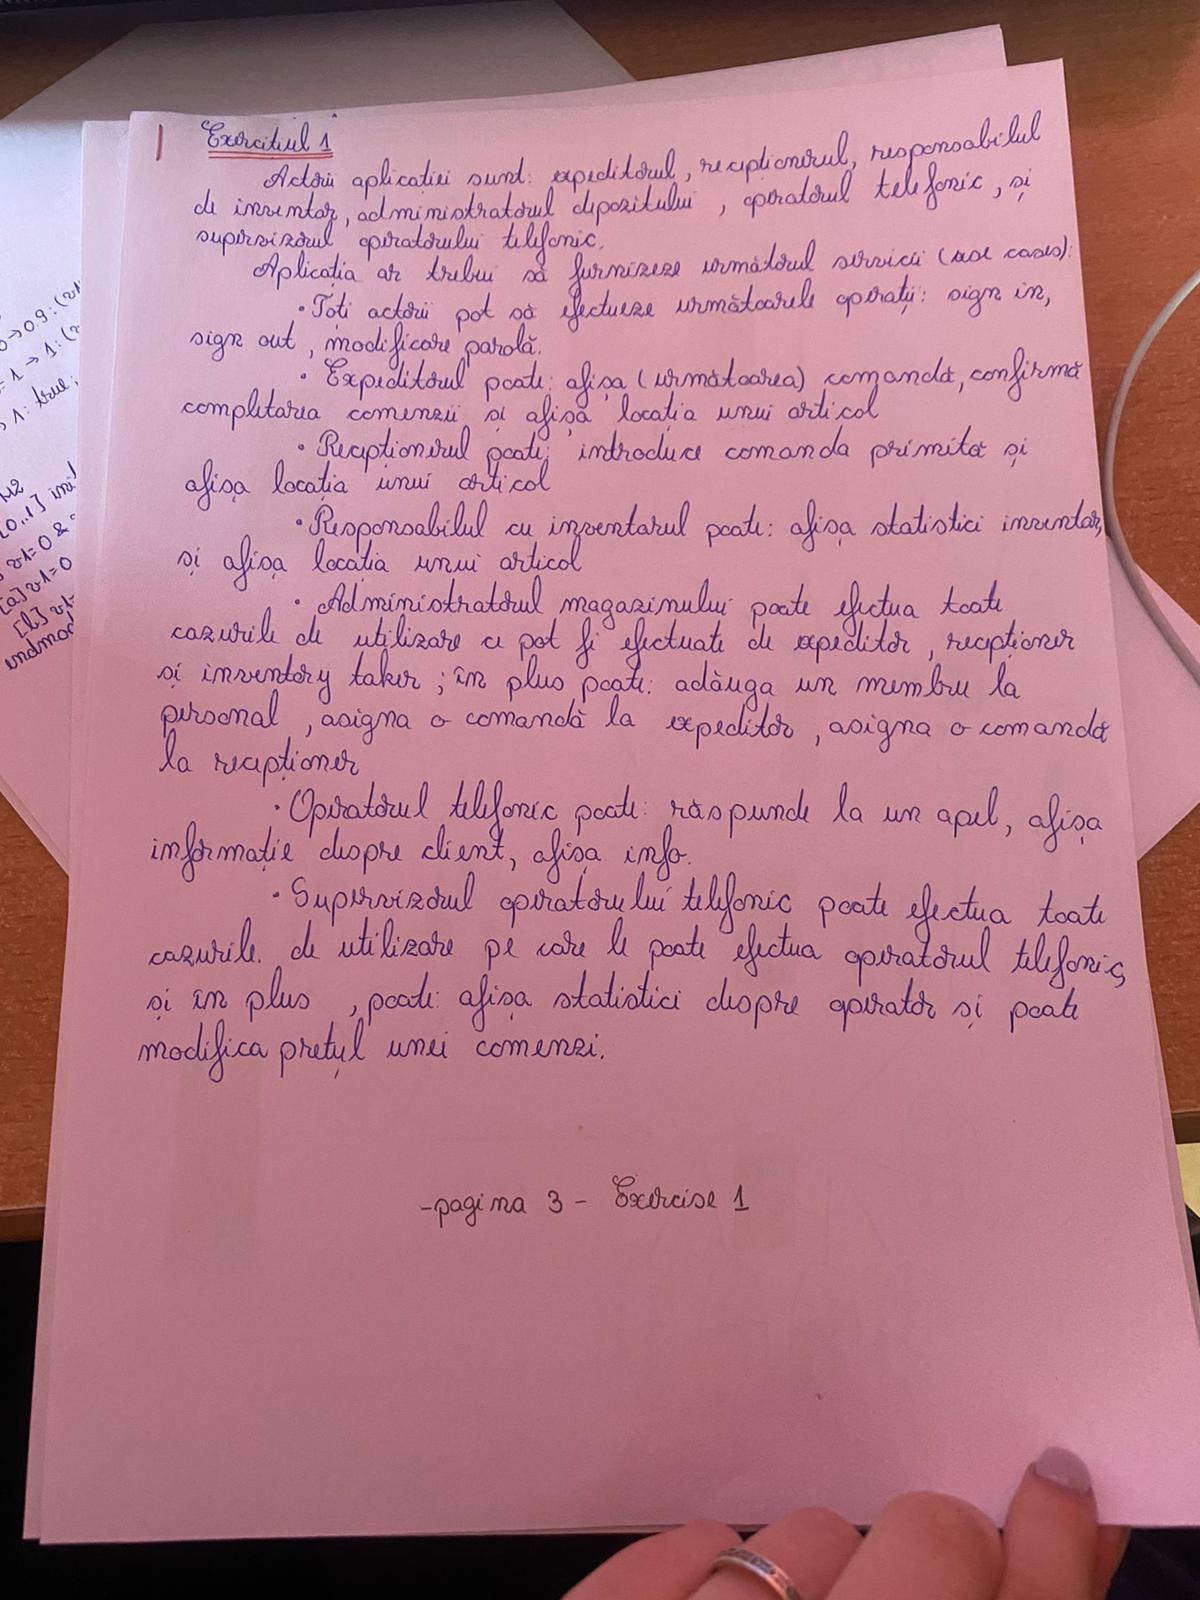 Exercitiul 1
Actorii aplicației sunt: expeditorul, recepționerul, responsabilul
de inventar, administratorul depozitului, operatorul telefonic, și
supervizorul operatorului telefonic.
Aplicația ar trebui să furnizeze următorul servicii (use cases):
• Toți actorii pot să efectueze următoarele operații: sign in,
sign out, modificare parolă.
• Expeditorul poate: afișa (următoarea) comandă, confirmă
completarea comenzii și afișa locația unui articol
• Recepționerul poate: introduce comanda primită și
afișa locația unui articol
• Responsabilul cu inventarul poate: afișa statistici inventar,
și afișa locația unui articol
• Administratorul magazinului poate efectua toate
cazurile de utilizare ce pot fi efectuate de expeditor, recepționer
și inventory taker; în plus poate: adăuga un membru la
personal, asigna o comandă la expeditor, asigna o comandă
la recepționer
• Operatorul telefonic poate: răspunde la un apel, afișa
informație despre client, afișa info.
• Supervizorul operatorului telefonic poate efectua toate
cazurile. de utilizare pe care le poate efectua operatorul telefonic,
și în plus, poate: afișa statistici despre operator și poate
modifica prețul unei comenzi.
-pagina 3 - Exercise 1
0→0.9:
= 1 → 1:
1: true;
M2
v1=0 &
[a] v1=0
endmod